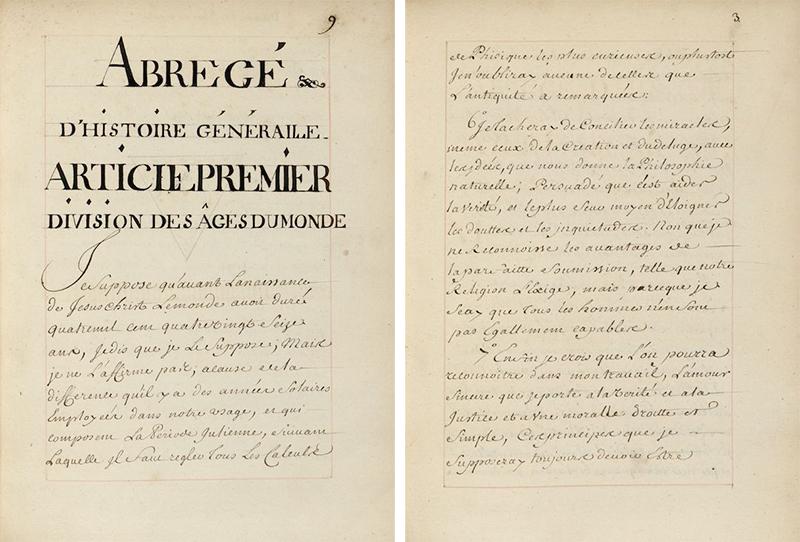 9
ABREGÉ
D'HISTOIRE GÉNÉRAILE.
ARTICIE PREMIER
DIVISION DES ÂGES DU MONDE
Je Suppose qu'avant Lanaissance
de Jesus Christ Lemonde avoir duré
quatremil cem quatrevingt Seize
ans, Jedis que je Le Suppose; Mais
je ne L'affirme pas; acause de la
difference quil y a des années Solaires
Employeés dans notre usage, et qui
composent La Periode Julienne, Suivant
Laquelle Jl Faut regler Tous Les Calculs
3
de Phisique les plus curieuses, ou plustost
Jen'oubliray aucune de celles que
L'antiquité a remarqueés:
6.° Je tacheray de Concilier les miracles,
meme ceux de la Creation et du deluge, avec
les jdeés, que nous donne la Philosophie
naturelle; Persuadé que c'est aider
la verité, et le plus seur moyen d'Eloigner
les douttes et les jnquietudes. Non que je
ne Reconnoisse les avantages de
la parfaitte Soumission, telle que notre
Religion L'Exige, mais parceque je
Scay que tous les hommes n'en Sont
pas Egallement capables.
7.° Enfin je crois que L'on pourra
reconnoitre dans mon travail, L'amour
Sincere que je porte a la Verité et a la
Justice et a vne moralle droitte et
Simple, Ces principes que je
Supposeray toujours devoir Estre